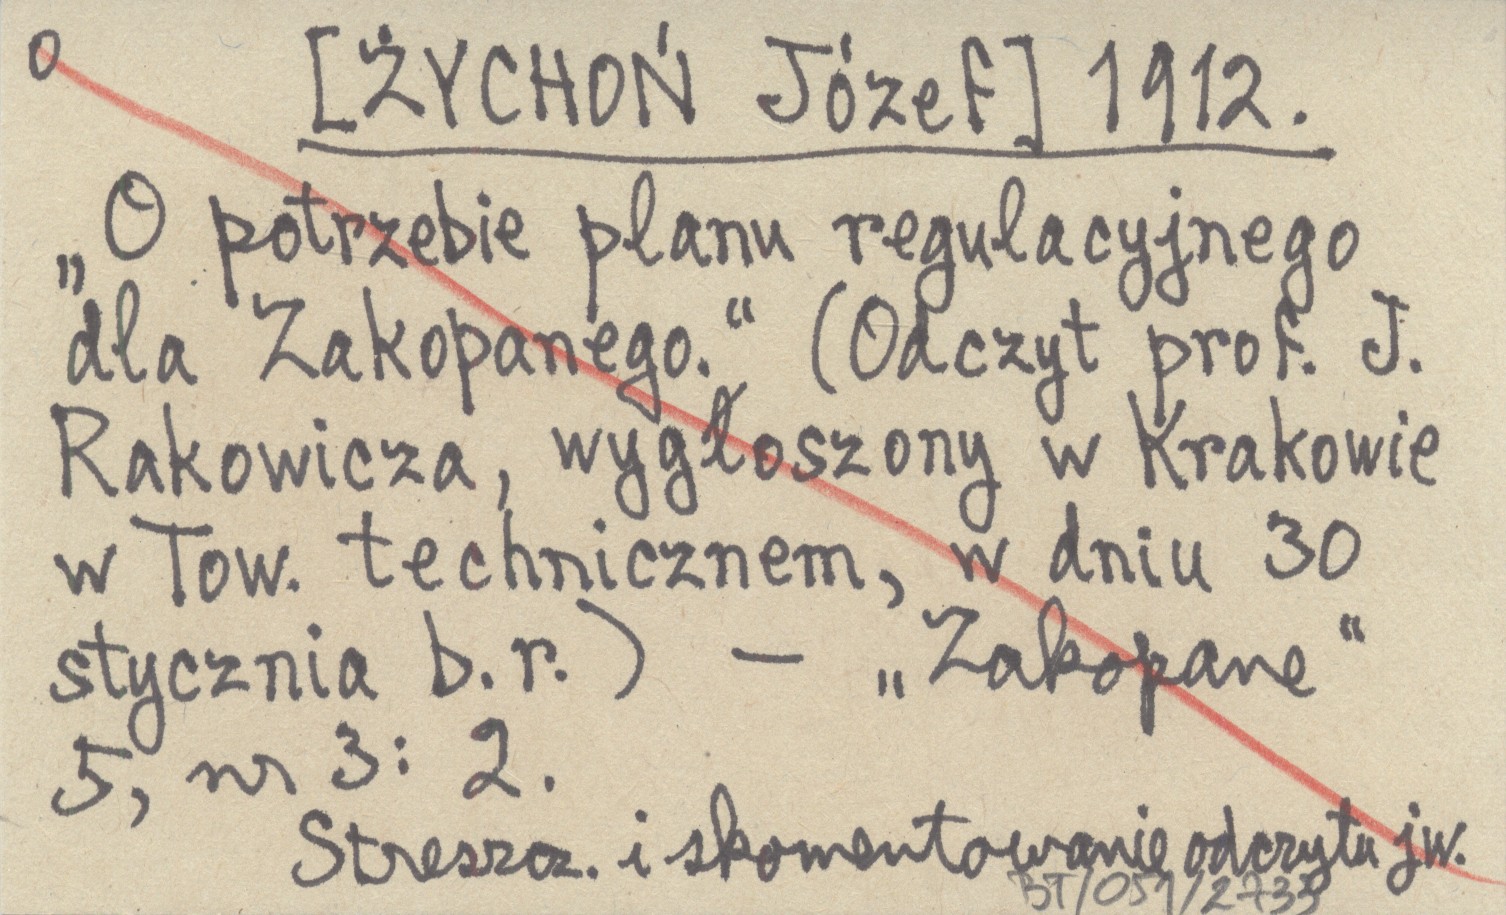 o [ŻYCHOŃ Józef] 1912.
„O potrzebie planu regulacyjnego
dla Zakopanego.“ (Odczyt prof. J.
Rakowicza, wygłoszony w Krakowie
w Tow. technicznem, w dniu 30
stycznia b.r.) — „Zakopane“
5, nr 3: 2.
Streszcz. i skomentowanie odczytu jw.
BT/051/2733